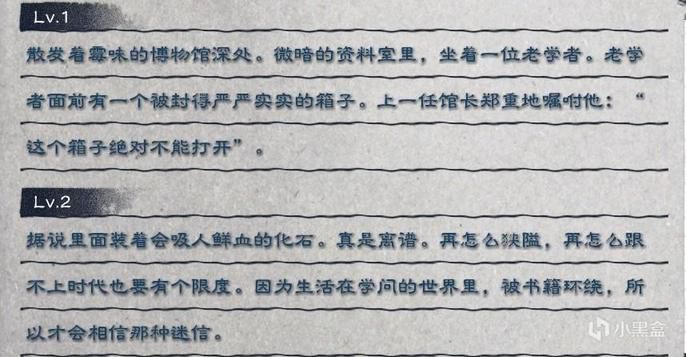 Lv.1
散发着霉味的博物馆深处。微暗的资料室里，坐着一位老学者。老学
者面前有一个被封得严严实实的箱子。上一任馆长郑重地嘱咐他：“
这个箱子绝对不能打开”。
Lv.2
据说里面装着会吸人鲜血的化石。真是离谱。再怎么狭隘，再怎么跟
不上时代也要有个限度。因为生活在学问的世界里，被书籍环绕，所
以才会相信那种迷信。
小黑盒